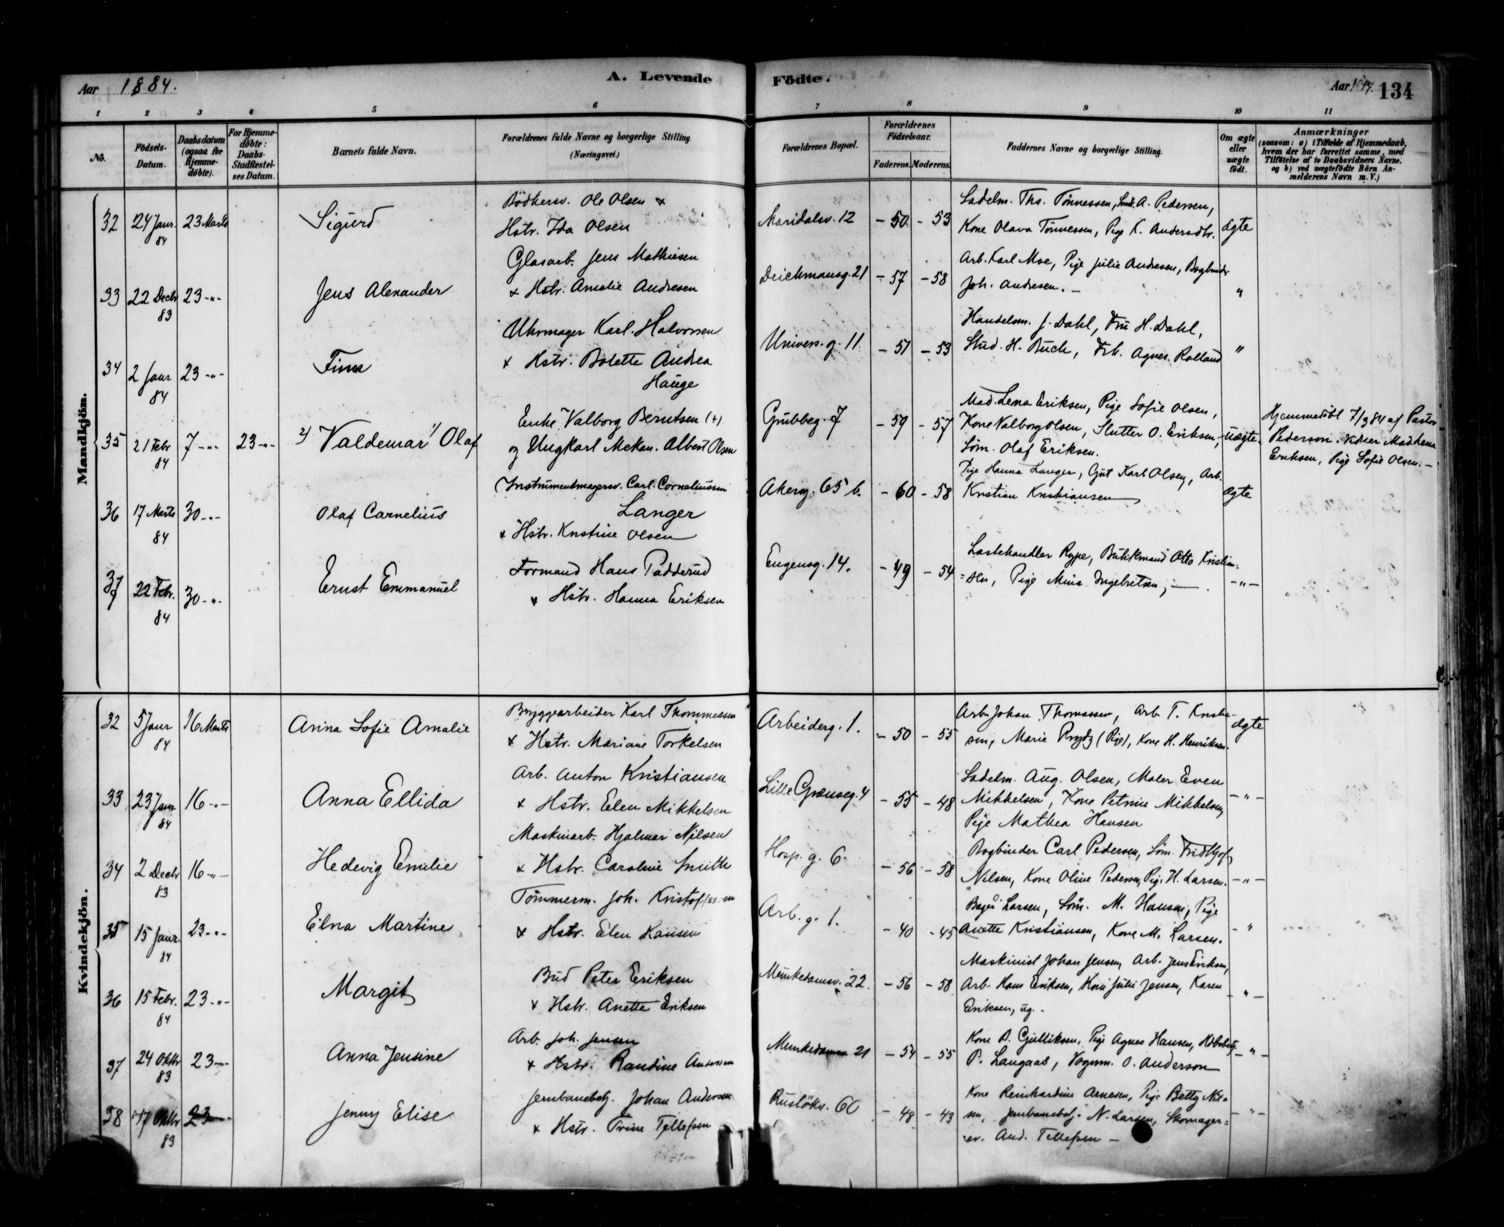 Aar 1884.
A. Levende Fødte.
Aar 134
1 2 3 4 5 6 7 8 9 10 11
No.
Fødsels-Datum.
Daabsdatum (ogsaa for Hjemme-døbte).
For Hjemme-døbte: Daabs-Stadfæstel-ses Datum.
Barnets fulde Navn.
Forældrenes fulde Navne og borgerlige Stilling. (Næringsvei.)
Forældrenes Bopæl.
Forældrenes Fødselsaar.
Faderens. Moderens.
Faddernes Navne og borgerlig Stilling.
Om ægte eller uægte født.
Anmærkninger
(saasom: a) i Tilfælde af Hjemmedaab, hvem der har forrettet samme, med Tilføielse af to Daabsvidners Navne, og b) ved uægtefødte Børn An-melderens Navn m. V.)
Mandkjön.
32 24 Janr. 84 23 Marts Sigurd
Bødkersv. Ole Olsen +
Hstr. Ida Olsen
Maridalsv. 12 - 50 - 53
Sadelm. Ths. Tønnessen, A. Pedersen,
Kone Olava Tønnessen, Pige K. Andersdtr. ægte
33 22 Decbr 83 23 -"- Jens Alexander
Glasarb. Jens Mathiesen
+ Hstr. Amalie Andresen
Deichmansg. 21 - 57 - 58
Arb. Karl Moe, Pige Julie Andresen, Bogbinder
Joh. Andresen. - "
34 2 Janr 84 23 -"- Finn
Uhrmager Karl Halvorsen
+ Hstr. Bolette Andrea
Hauge
Univers. g. 11 - 51 - 53
Handelsm. J. Dahl, Fru H. Dahl,
Stud. H. Buch, Frk. Agnes Rolland "
35 21 Febr 84 7 -"- 23 -"- 2) Valdemar 1) Olaf
Enke Valborg Berntsen (+)
og Ungkarl Mekan. Albert Olsen
Grubbeg. 7 - 59 - 57
Mad. Lena Eriksen, Pige Sofie Olsen,
Kone Valborg Olsen, Slutter O. Eriksen,
Søm. Olaf Eriksen. uægte
Hjemmedøbt 7/3 84 af Pastor
Pederson. Vidner Mad Lena
Eriksen, Pige Sofie Olsen. -
36 17 Marts 84 30 -"- Olaf Cornelius
Instrumentmagersv. Carl Corneliussen
Langer
+ Hstr. Kristine Olsen
Akersg. 65 b. - 60 - 58
Pige Hanna Langer, Gut Karl Olsen, Arb.
Kristian Kristiansen ægte
37 22 Febr. 84 30 -"- Ernst Emmanuel
Formand Hans Padderud
+ Hstr. Hanna Eriksen
Eugensg. 14. - 49 - 54
Lastehandler Rype, Butikmand Otto Kristian-
sen, Pige Mina Ingebretsen, - "
Kvindekjön.
32 5 Janr 84 16 Marts Anna Sofie Amalie
Bryggearbeider Karl Thommessen
+ Hstr. Mariane Torkelsen
Arbeiderg. 1. - 50 - 55
Arb. Johan Thomassen, Arb. T. Kristian-
sen, Marie (Pige), Kone H. Henriksen. ægte
33 23 Janr 84 16 -"- Anna Ellida
Arb. Anton Kristiansen
+ Hstr. Elen Mikkelsen
Lille Grænseg. 4 - 55 - 48
Sadelm. Aug. Olsen, Maler Even
Mikkelsen, Kone Petrine Mikkelsen,
Pige Mathea Hansen - " -
34 2 Decbr 83 16 -"- Hedevig Emilie
Maskinarb. Hjalmar Nilsen
+ Hstr. Caroline Smith
Hosp. g. 6. - 56 - 58
Bogbinder Carl Pedersen, Søm. Fridtjof
Nilsen, Kone Oline Pedersen, Pige H. Larsen. - " -
35 15 Janr 84 23 -"- Elna Martine
Tømmerm. Joh. Kristoffersen
+ Hstr. Elen Hansen
Arb. g. 1. - 40 - 45
Larsen, Søm. M. Hansen, Pige
Anette Kristiansen, Kone M. Larsen. "
36 15 Febr. 84 23 -"- Margit
Bud Peter Eriksen
+ Hstr. Anette Eriksen
Munkedamsv. 22. - 56 - 58
Maskinist Johan Jensen, Arb. Jens Eriksen,
Arb. Hans Eriksen, Kone Julie Jensen, Karen
Eriksen, ug. - " -
37 24 Oktbr 83 23 -"- Anna Jensine
Arb. Joh. Jensen
+ Hstr. Randine Andersen
Munkedamsv 21 - 54 - 55
Kone D. Gulliksen, Pige Agnes Hansen,
P. Langaas, Vognm. O. Anderson - " -
38 17 Oktbr 83 23 - Jenny Elise
Jernbanebetj. Johan Andersen
+ Hstr. Trine Tellefsen
Ruseløkv. 60 - 48 - 43
Kone Reinhardine Arnesen, Pige Betty Nil-
sen, Jernbanebetj. N. Larsen, Skomager-
sv. And. Tellefsen - - " -